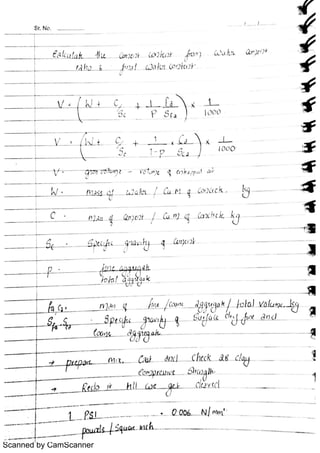 Sr. No.
Calculate the cement content from water cement
ratio & final water content
V = ( W + C/Sc + 1/P fa/Sfa ) x 1/1000
V = ( W + C/Sc + 1/1-P x Ca/Sca ) x 1/1000
V = gross volume - volume of entrapped air
W = mass of water / Cu.m of concrete. kg
C = mass of cement / Cu.m of concrete kg
Sc = Specific gravity of cement
P = fine aggregate
total aggregate
fa, Ca = mass of fine / coarse aggregate / total volume. kg
Sfa, Sca = Specific gravity of Surface dry fine and
coarse aggregate
→ prepare mix, Cast and Check 28 day
Compressive Strength
→ Redo it till we get desired
1 PSI = 0.006 N/mm²
pounds / square inch
Scanned by CamScanner